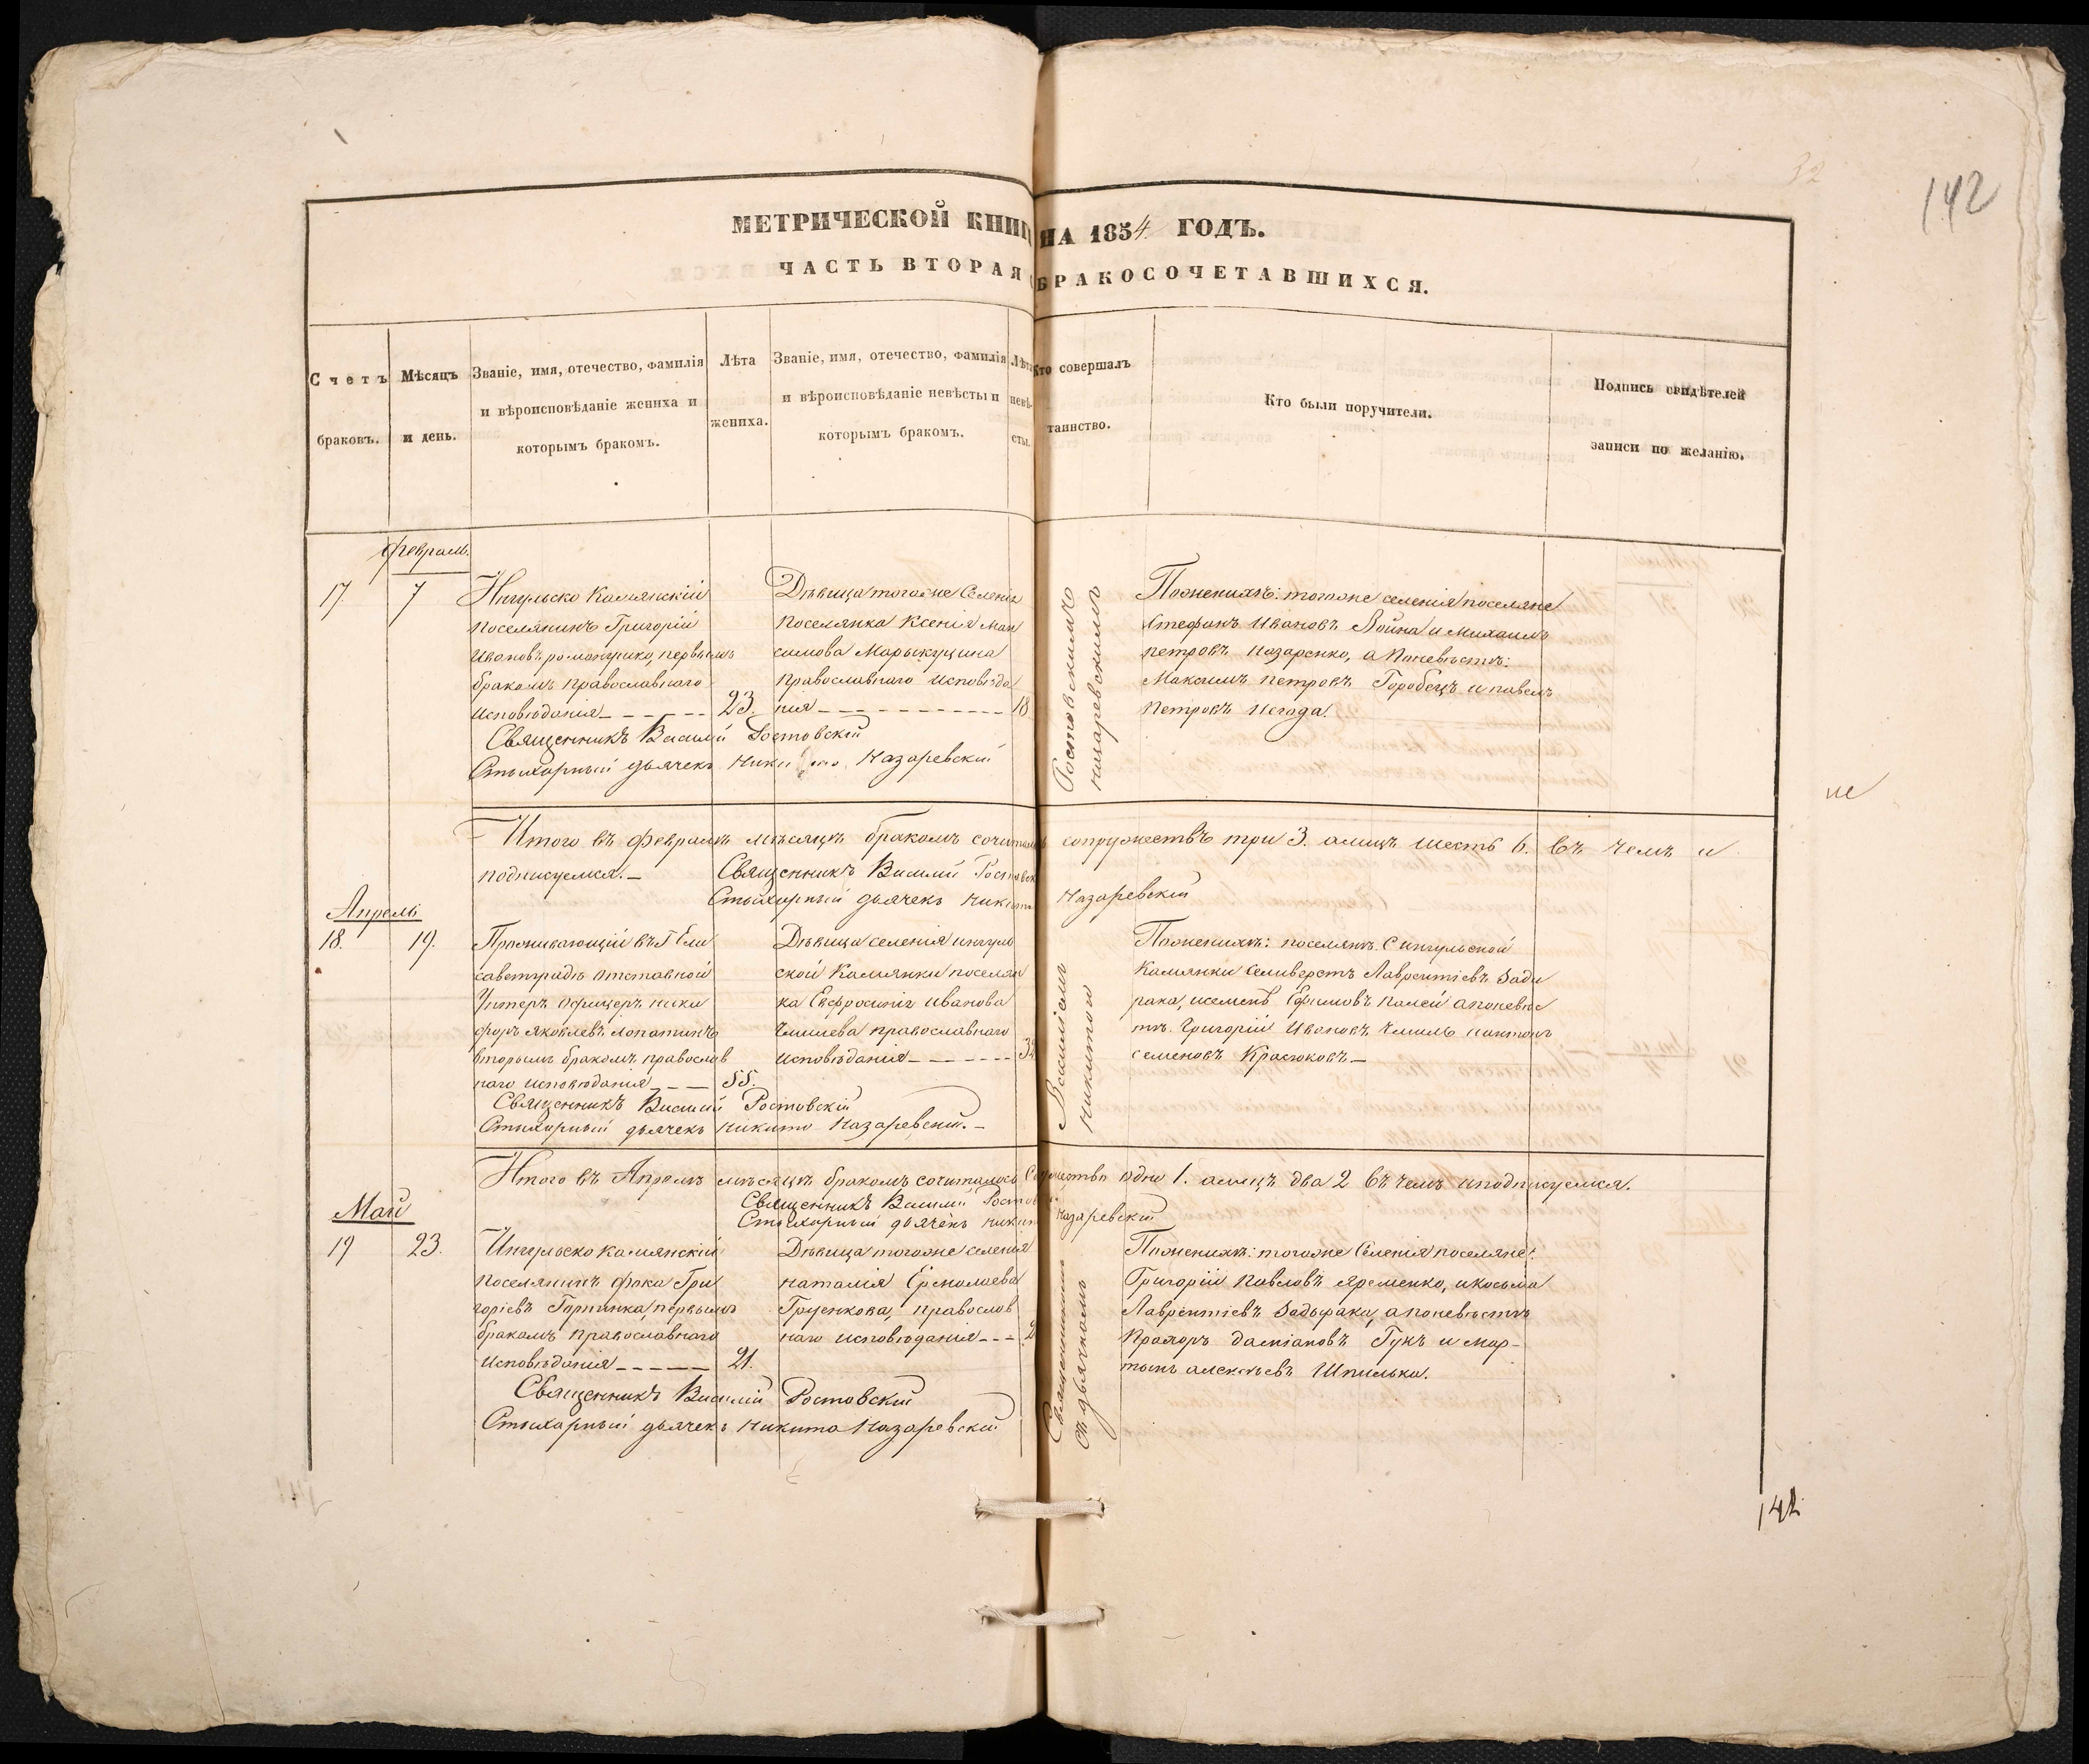 142
МЕТРИЧЕСКОЙ КНИГ НА 1854 ГОДЪ.
ЧАСТЬ ВТОРАЯ БРАКОСОЧЕТАВШИХСЯ.
Счетъ браковъ.
Мѣсяцъ и день.
Званіе, имя, отечество, фамилія
и вѣроисповѣданіе жениха и
которымъ бракомъ.
Лѣта
жениха.
Званіе, имя, отечество, фамилія
и вѣроисповѣданіе невѣсты и
которымъ бракомъ.
Лѣта
невѣ-
сты.
Кто совершалъ
таинство.
Кто были поручители.
Подпись свидѣтелей
записи по желанію.
Февраль.
17. 7
Ингульско Камянскій
поселянинъ Григорій
Ивановъ романенко, первымъ
бракомъ православнаго
исповѣданія 23.
Дѣвица тогоже Селенія
поселянка Ксенія Мак
симова Марыкуцина
православнаго исповѣда
нія 18
Ростовскимъ
Назаревскимъ
Поженихѣ: тогоже селенія поселяне
Стефанъ Ивановъ Война и Михаилъ
петровъ Назаренко, а Поневѣстѣ:
Максимъ Петровъ Горобецъ и павелъ
Петровъ Негода.
Священникъ Василій Ростовскій
Стихарный дьячекъ Никита Назаревскій
Итого въ Февралѣ мѣсяцѣ бракомъ сочиталось супружествъ три 3. алицъ шесть 6. въ чемъ и
подписуемся.—
Священникъ Василій Ростовск
Стихарный дьячекъ Никита Назаревскій
не
Апрель
18. 19.
Проживающій въ Г Ели
саветградѣ отставной
Унтеръ офицеръ ники
форъ Яковлевъ Лопатинъ
вторымъ бракомъ, православ
наго исповѣданія 55.
Дѣвица селенія ингуль
ской Камянки поселян
ка Евфросинія Иванова
Чмилева православнаго
исповѣданія
Василіемъ
Никитой
Поженихѣ: поселянъ. С ингульской
Камянки Селиверстъ Лаврентіевъ Зади
рака, исеменъ Ефимовъ палей апоневѣс
тѣ. Григорій Ивановъ Чмиль иантонъ
семеновъ Красюковъ—
Священникъ Василій Ростовскій
Стихарный дьячекъ Никита Назаревскій.—
Итого въ Апрелѣ мѣсяцѣ бракомъ сочиталось Супружество одно 1. алицъ два 2 въ чемъ иподписуемся.
Священникъ Василій Ростов
Стихарный дьячекъ Никит Назаревскій
Май
19 23.
Ингульско Камянскій
поселянинъ Фока Гри
горіевъ Горпинка, первымъ
бракомъ православнаго
исповѣданія 21.
Дѣвица тогоже селенія
Наталія Ермолаева
Груенкова, православ
наго исповѣданія
Священникомъ
съ дьячкомъ
Поженихѣ: тогоже Селенія поселяне:
Григорій Павловъ яременко, икосьма
Лаврентіевъ Задырака, апоневѣстѣ
Прохоръ даміановъ Гукъ и Мар-
тынъ алексѣевъ Шпилька.
Священникъ Василій Ростовскій
Стихарный дьячекъ Никита Назаревскій
142